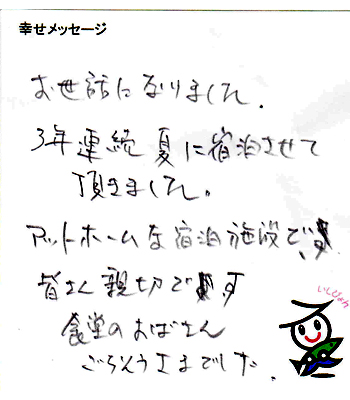 幸せメッセージ
お世話になりました.
3年連続 夏に宿泊させて
頂きました。
アットホームな宿泊施設です.
皆さん親切です
食堂のおばさん
ごちそうさまでした.